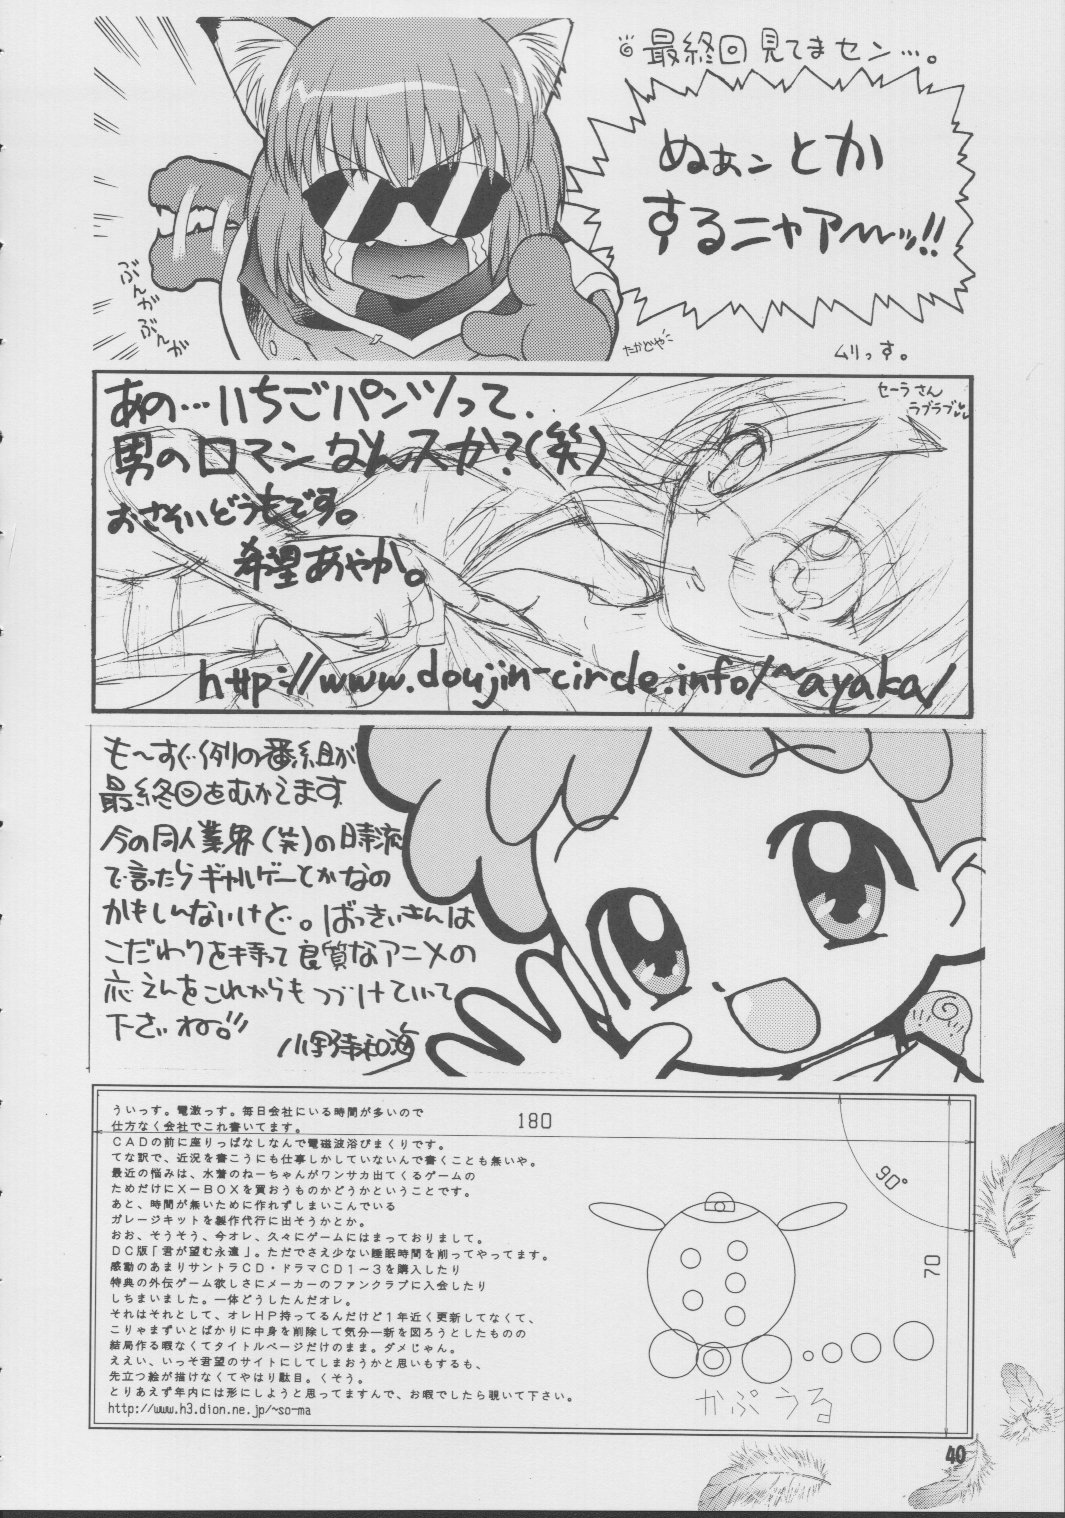 最終回見てまセン…。
ぬぁンとか
するニャアーッ!!
ぶんが
ぶんが
たかどや
ムリっす。
あの…いちごパンツって、
男のロマンなんスか?(笑)
おさそいどうもです。
希望あやか。
セーラさん
ラブラブ
http://www.doujin-circle.info/~ayaka/
も〜すぐ例の番組が
最終回をむかえます
今の同人業界(笑)の時流
で言ったらギャルゲーとかなの
かもしんないけど。ばっきぃさんは
こだわりを持って良質なアニメの
応えんをこれからもつづけていって
下さいね。!!
ういっす。電激っす。毎日会社にいる時間が多いので
仕方なく会社でこれ書いてます。
CADの前に座りっぱなしなんで電磁波浴びまくりです。
てな訳で、近況を書こうにも仕事しかしていないんで書くことも無いや。
最近の悩みは、水着のねーちゃんがワンサカ出てくるゲームの
ためだけにX−BOXを買おうものかどうかということです。
あと、時間が無いために作れずしまいこんでいる
ガレージキットを製作代行に出そうかとか。
おお、そうそう、今オレ、久々にゲームにはまっておりまして。
DC版「君が望む永遠」。ただでさえ少ない睡眠時間を削ってやってます。
感動のあまりサントラCD・ドラマCD1〜3を購入したり
特典の外伝ゲーム欲しさにメーカーのファンクラブに入会したり
しちまいました。一体どうしたんだオレ。
それはそれとして、オレHP持ってるんだけど1年近く更新してなくて、
こりゃまずいとばかりに中身を削除して気分一新を図ろうとしたものの
結局作る暇なくてタイトルページだけのまま。ダメじゃん。
ええい、いっそ君望のサイトにしてしまおうかと思いもするも、
先立つ絵が描けなくてやはり駄目。くそう。
とりあえず年内には形にしようと思ってますんで、お暇でしたら覗いて下さい。
http://www.h3.dion.ne.jp/~so-ma
180
90°
70
かぷうる
40